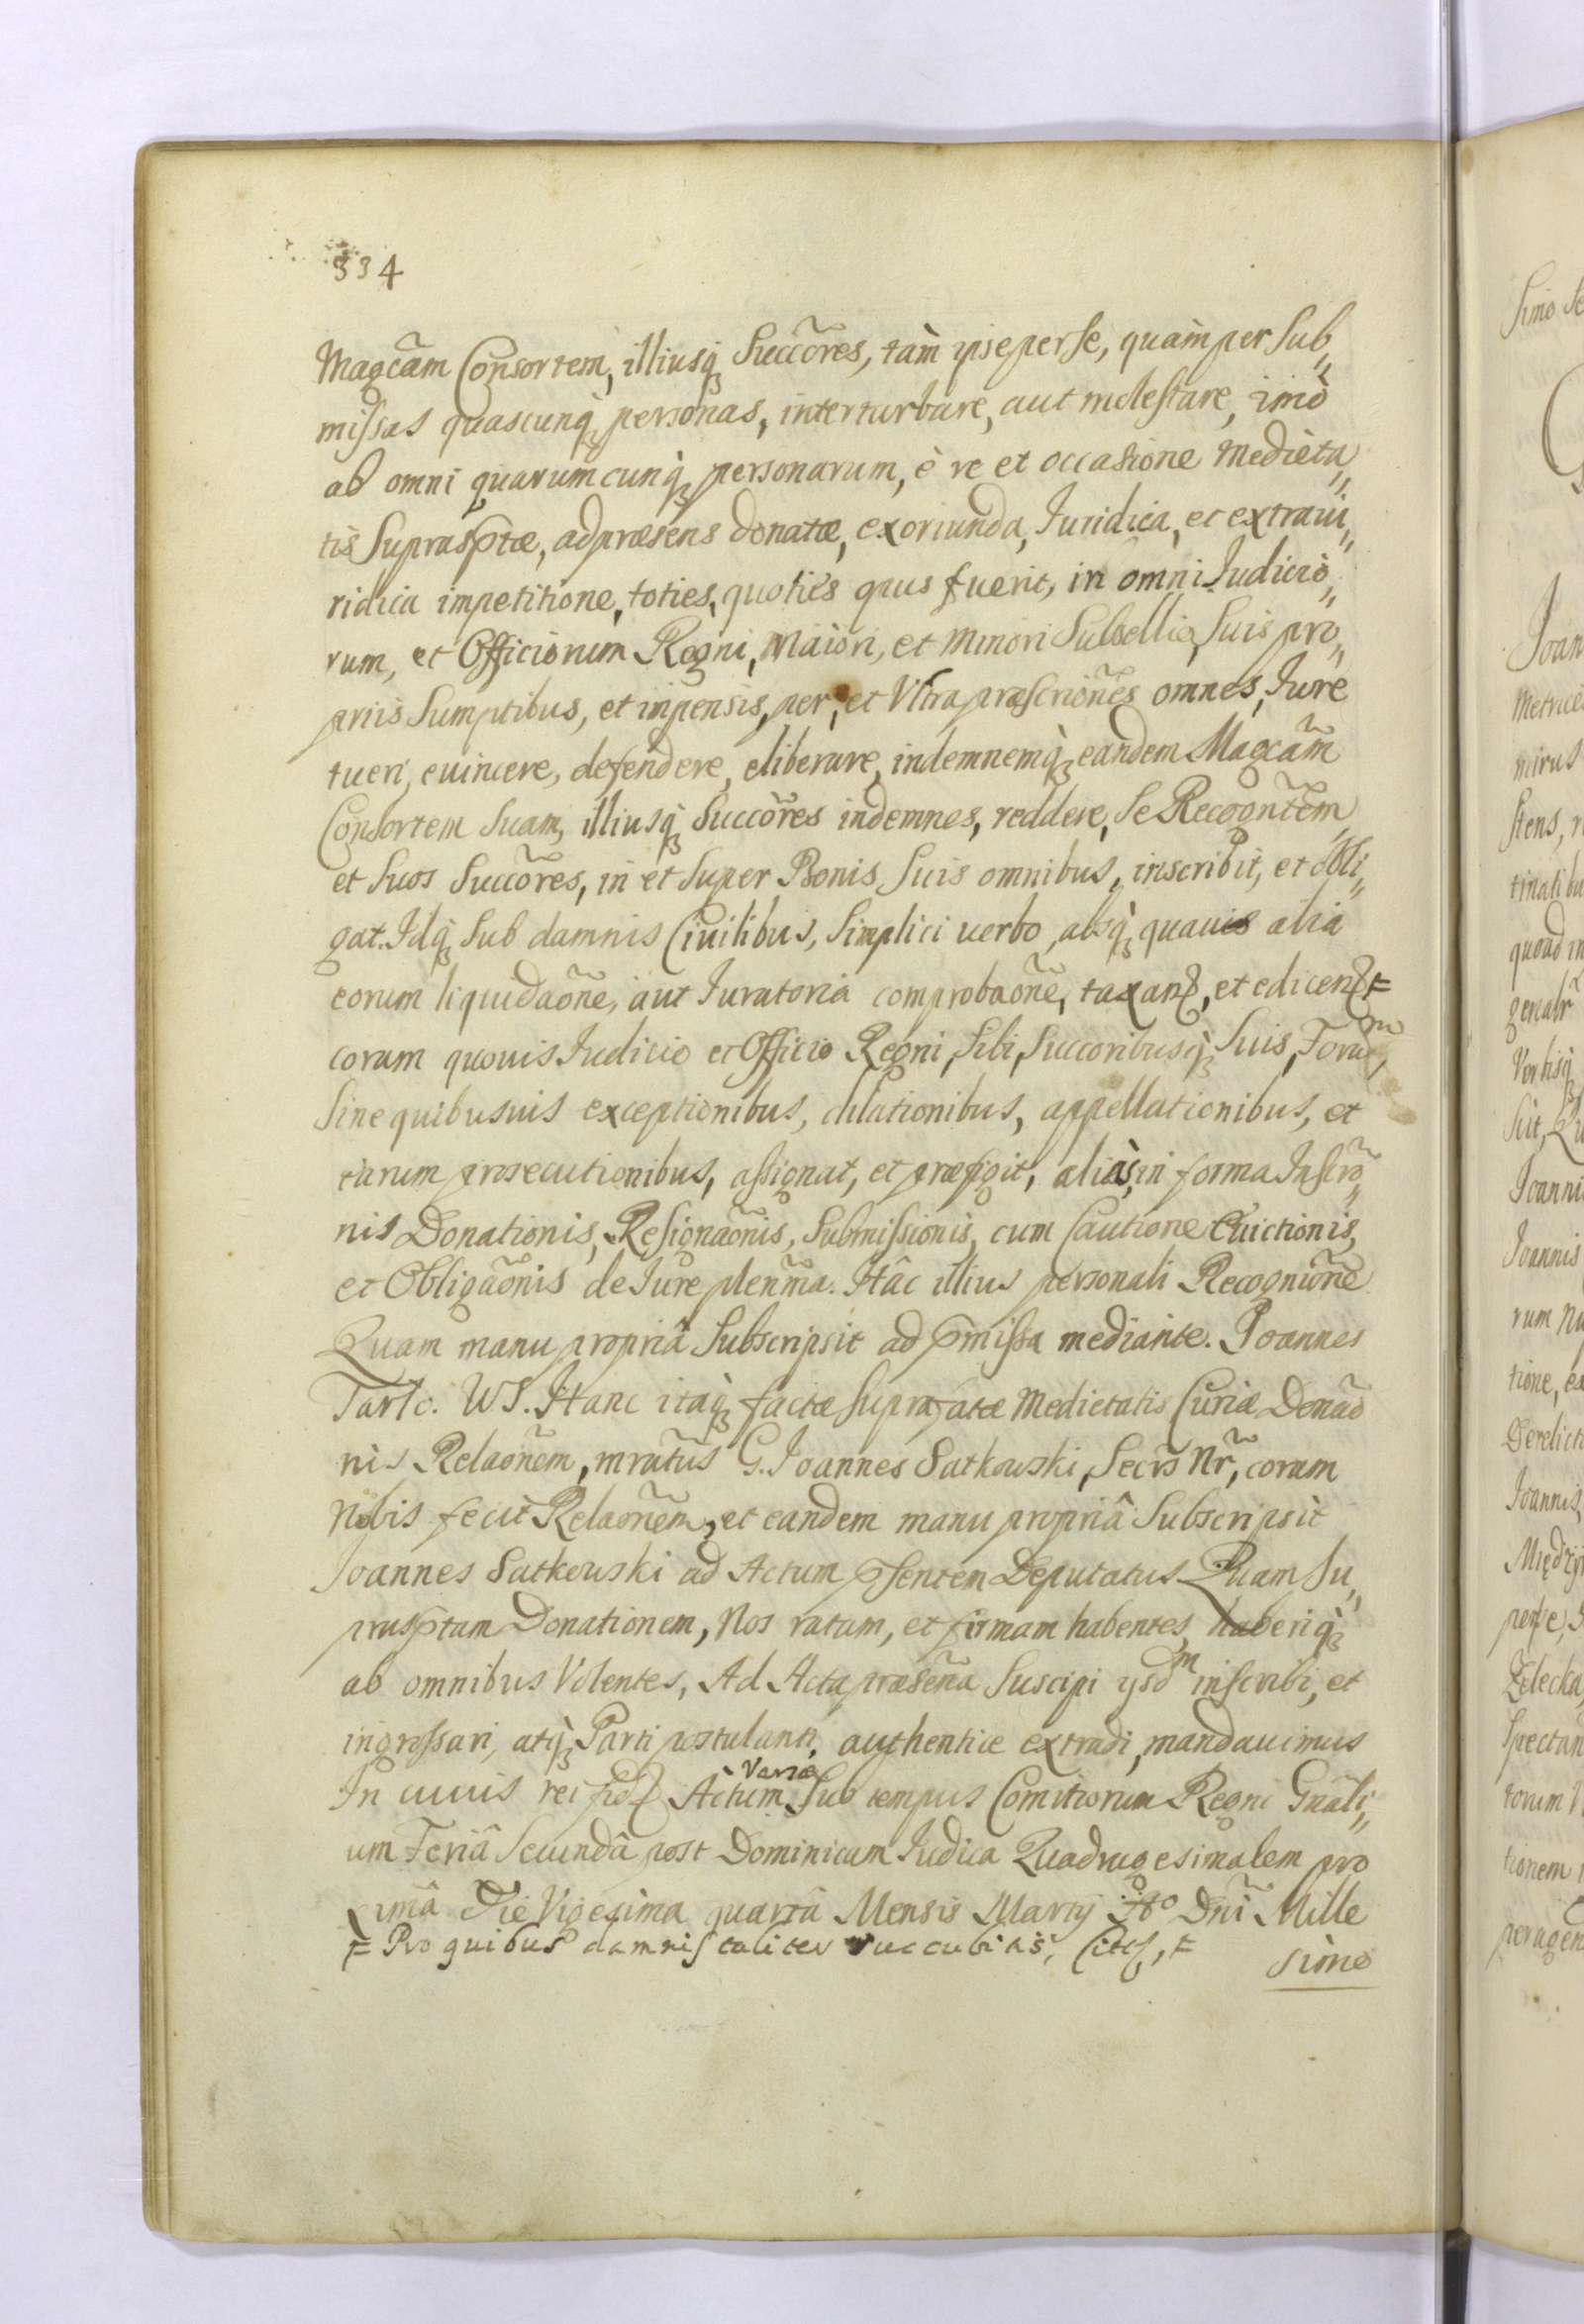 334
Magcãm Consortem, illiusq₃ Succõres, tàm ipse per se, quàm per Sub„
missas quascunq₃ personas, interturbare, aut molestare, imò
ab omni quarumcunq₃ personarum, è re et occasione medieta„
tis Suprasptæ, ad præsens donatæ, exoriunda, Juridica, et extraiu„
ridica impetitione, toties, quoties opus fuerit, in omni Judicio„
rum, et Officiorum Regni, Maiori, et Minori Subsellio, Suis pro„
priis Sumptibus, et inpensis, per, et Vltra præscriõnes omnes, Jure
tueri, euincere, defendere, eliberare, indemnemq₃ eandem Magcãm
Consortem Suam, illiusq₃ Succõres indemnes, reddere, Se Recogntẽm,
et Suos Succõres, in et Super Bonis Suis omnibus, inscribit, et obli„
gat. Idq₃ Sub damnis Ciuilibus, Simplici verbo, absq₃ quauis alia
eorum liquidaõne, aut Juratoria comprobaõne, taxan₰, et edicen₰ ⨦
coram quouis Judicio et Officio Regni, Sibi, Succoribusq₃ Suis, Foruͫ,
Sine quibusuis exceptionibus, dilationibus, appellationibus, et
earum prosecutionibus, assignat, et præfigit, aliàs, in forma Inscrõ„
nis Donationis, Resignaõnis, Submissionis, cum Cautione Euictionis,
et Obligaõnis de Jure plenm̃a. Hâc illius personali Recogniõne
Quam manu propriâ Subscripsit ad p̃missa mediante. Joannes
Tarlo. WS. Hanc itaq₃ factæ Suprafatæ Medietatis Curiæ Donaõ
nis Relaõnem, mratus G. Joannes Satkowski, Secrs Nr̃, coram
Nobis fecit Relaõnem, et eandem manu propriâ Subscripsit
Joannes Satkowski ad Actum p̃sentem Deputatus Quam Su„
prasptam Donationem, Nos ratam, et firmam habentes, haberiq₃
ab omnibus Volentes, Ad Acta præsẽna Suscipi ysdͫ inscribi, et
ingrossari, atq₃ Parti postulanti, authentice extradi, mandauimus
In cuius rei fid₰ Actum Varsæ Sub tempus Comitiorum Regni Gnãli„
um Feriâ Secundâ post Dominicam Judica Quadragesimalem pro
ximâ Die Vigesima quartâ Mensis Martÿ Aº Dnĩ Mille
⨦ Pro quibus damnis taliter succubitis, Cit₰, ⨦
simo